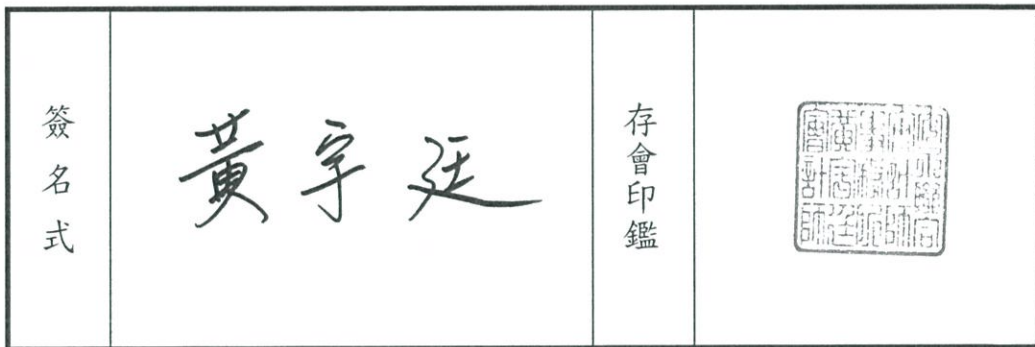 簽名式
黃宇廷
存會印鑑